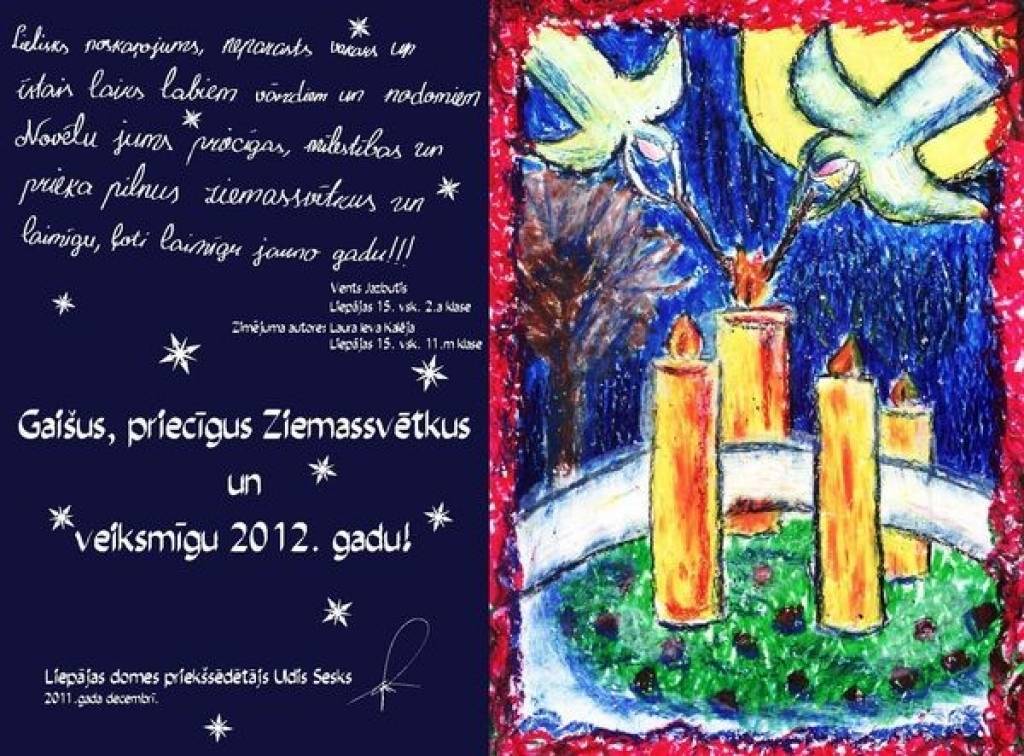 Lielisks noskaņojums, neparasts vakars un
īstais laiks labiem vārdiem un nodomiem
Novēlu jums priecīgas, mīlestības un
prieka pilnus ziemassvētkus un
laimīgu, ļoti laimīgu jauno gadu!!!
Vents Jacbutis
Liepājas 15. vsk. 2.a klase
Zīmējuma autore: Laura Ieva Kalēja
Liepājas 15. vsk. 11.m klase
Gaišus, priecīgus Ziemassvētkus
un
veiksmīgu 2012. gadu!
Liepājas domes priekšsēdētājs Uldis Sesks
2011.gada decembrī.